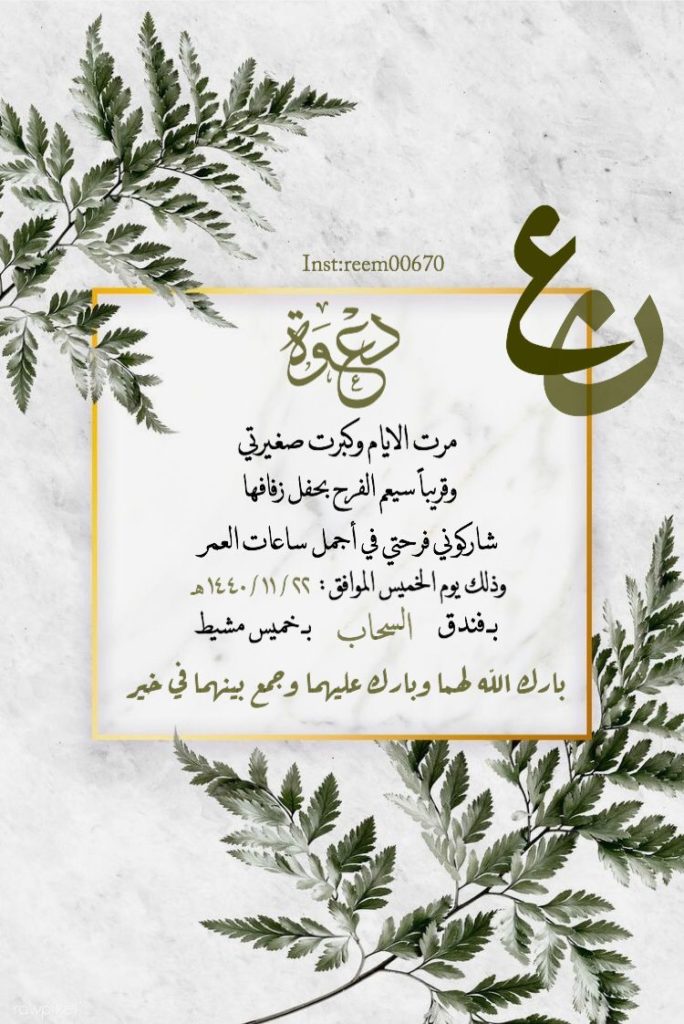 Inst:reem00670
ع
ن
دعوة
مرت الايام وكبرت صغيرتي
وقريباً سيعم الفرح بحفل زفافها
شاركوني فرحتي في أجمل ساعات العمر
وذلك يوم الخميس الموافق: ٢٢/ ١١/ ١٤٤٠هـ
بـفندق السحاب بـخميس مشيط
بارك الله لهما وبارك عليهما وجمع بينهما في خير
rawpixel